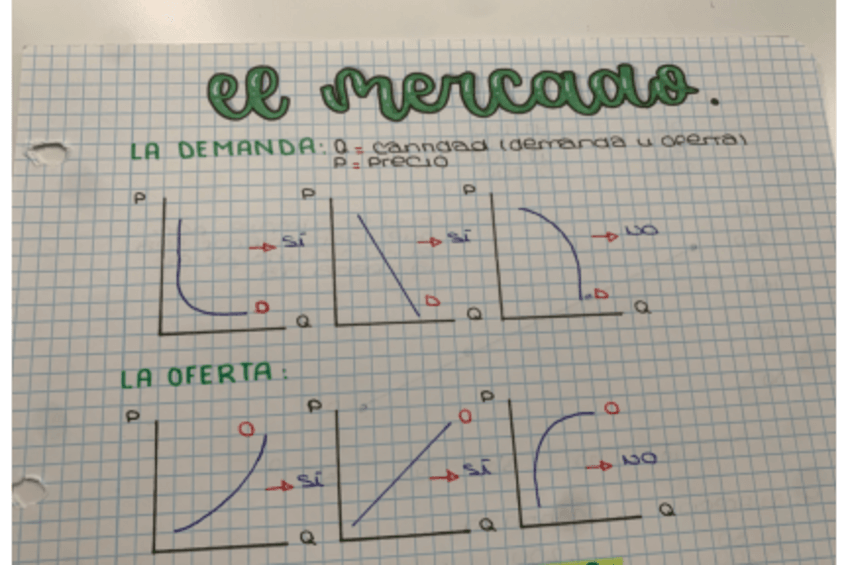 el mercado.
LA DEMANDA: Q = cantidad (demanda u oferta)
P = Precio
P P P
→ SÍ → SÍ → NO
D D D
Q Q Q
LA OFERTA:
P P P
O O O
→ SÍ → SÍ → NO
Q Q Q